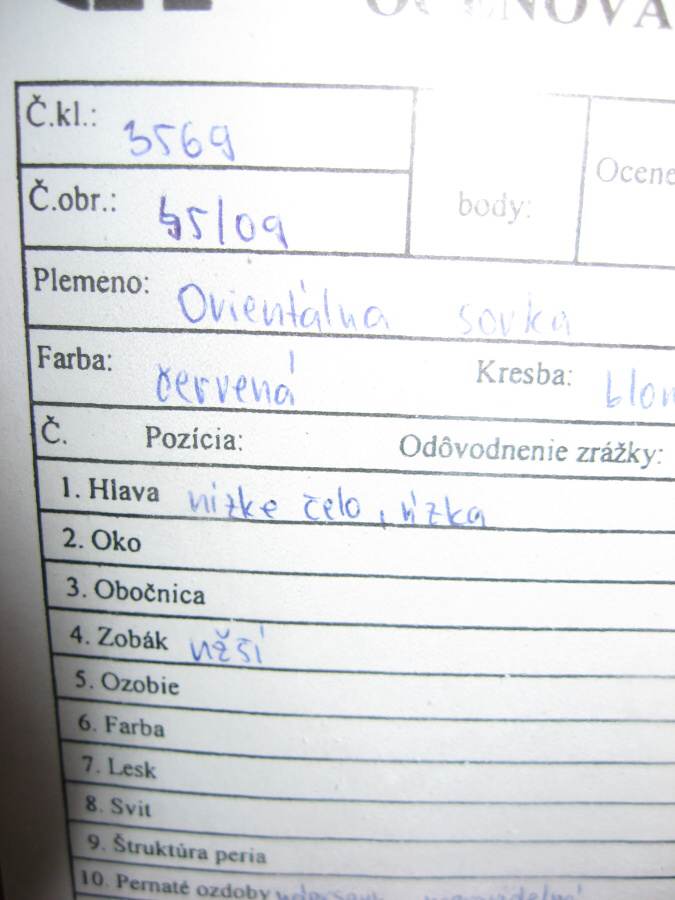 Č.kl.: 3569
Č.obr.: 45/09
body:
Plemeno: Orientálna sovka
Farba: červená Kresba:
Č. Pozícia: Odôvodnenie zrážky:
1. Hlava nízke čelo,
2. Oko
3. Obočnica
4. Zobák užší
5. Ozobie
6. Farba
7. Lesk
8. Svit
9. Štruktúra peria
10. Pernaté ozdoby